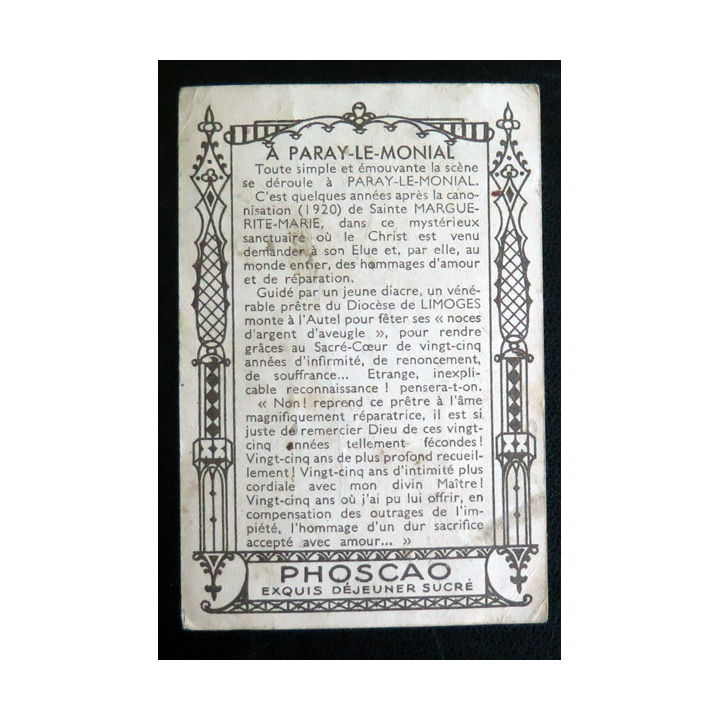 A PARAY-LE-MONIAL
Toute simple et émouvante la scène
se déroule à PARAY-LE-MONIAL.
C'est quelques années après la cano-
nisation (1920) de Sainte MARGUE-
RITE-MARIE, dans ce mystérieux
sanctuaire où le Christ est venu
demander à son Elue et, par elle, au
monde entier, des hommages d'amour
et de réparation.
Guidé par un jeune diacre, un véné-
rable prêtre du Diocèse de LIMOGES
monte à l'Autel pour fêter ses « noces
d'argent d'aveugle », pour rendre
grâces au Sacré-Cœur de vingt-cinq
années d'infirmité, de renoncement,
de souffrance... Etrange, inexpli-
cable reconnaissance ! pensera-t-on.
« Non ! reprend ce prêtre à l'âme
magnifiquement réparatrice, il est si
juste de remercier Dieu de ces vingt-
cinq années tellement fécondes !
Vingt-cinq ans de plus profond recueil-
lement ! Vingt-cinq ans d'intimité plus
cordiale avec mon divin Maître !
Vingt-cinq ans où j'ai pu lui offrir, en
compensation des outrages de l'im-
piété, l'hommage d'un dur sacrifice
accepté avec amour... »
PHOSCAO
EXQUIS DÉJEUNER SUCRÉ